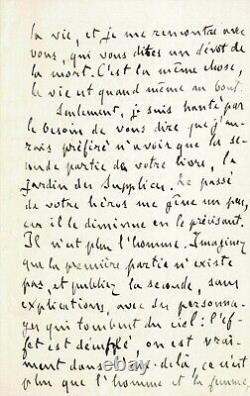 la vie, et je me rencontre avec
vous, qui vous dites un dévot de
la mort. C'est la même chose,
la vie est quand même au bout.
Seulement, je suis hanté par
le besoin de vous dire que j'au-
rais préféré n'avoir que la se-
conde partie de votre livre, le
Jardin des Supplices. Le passé
de votre héros me gêne un peu,
car il le diminue en le précisant.
Il n'est plus l'homme. Imaginez
que la première partie n'existe
pas, et publiez la seconde, sans
explications, avec ses personna-
ges qui tombent du ciel : l'ef-
fet est décuplé, on est vrai-
ment dans l'au-delà, ce n'est
plus que l'homme et la femme,